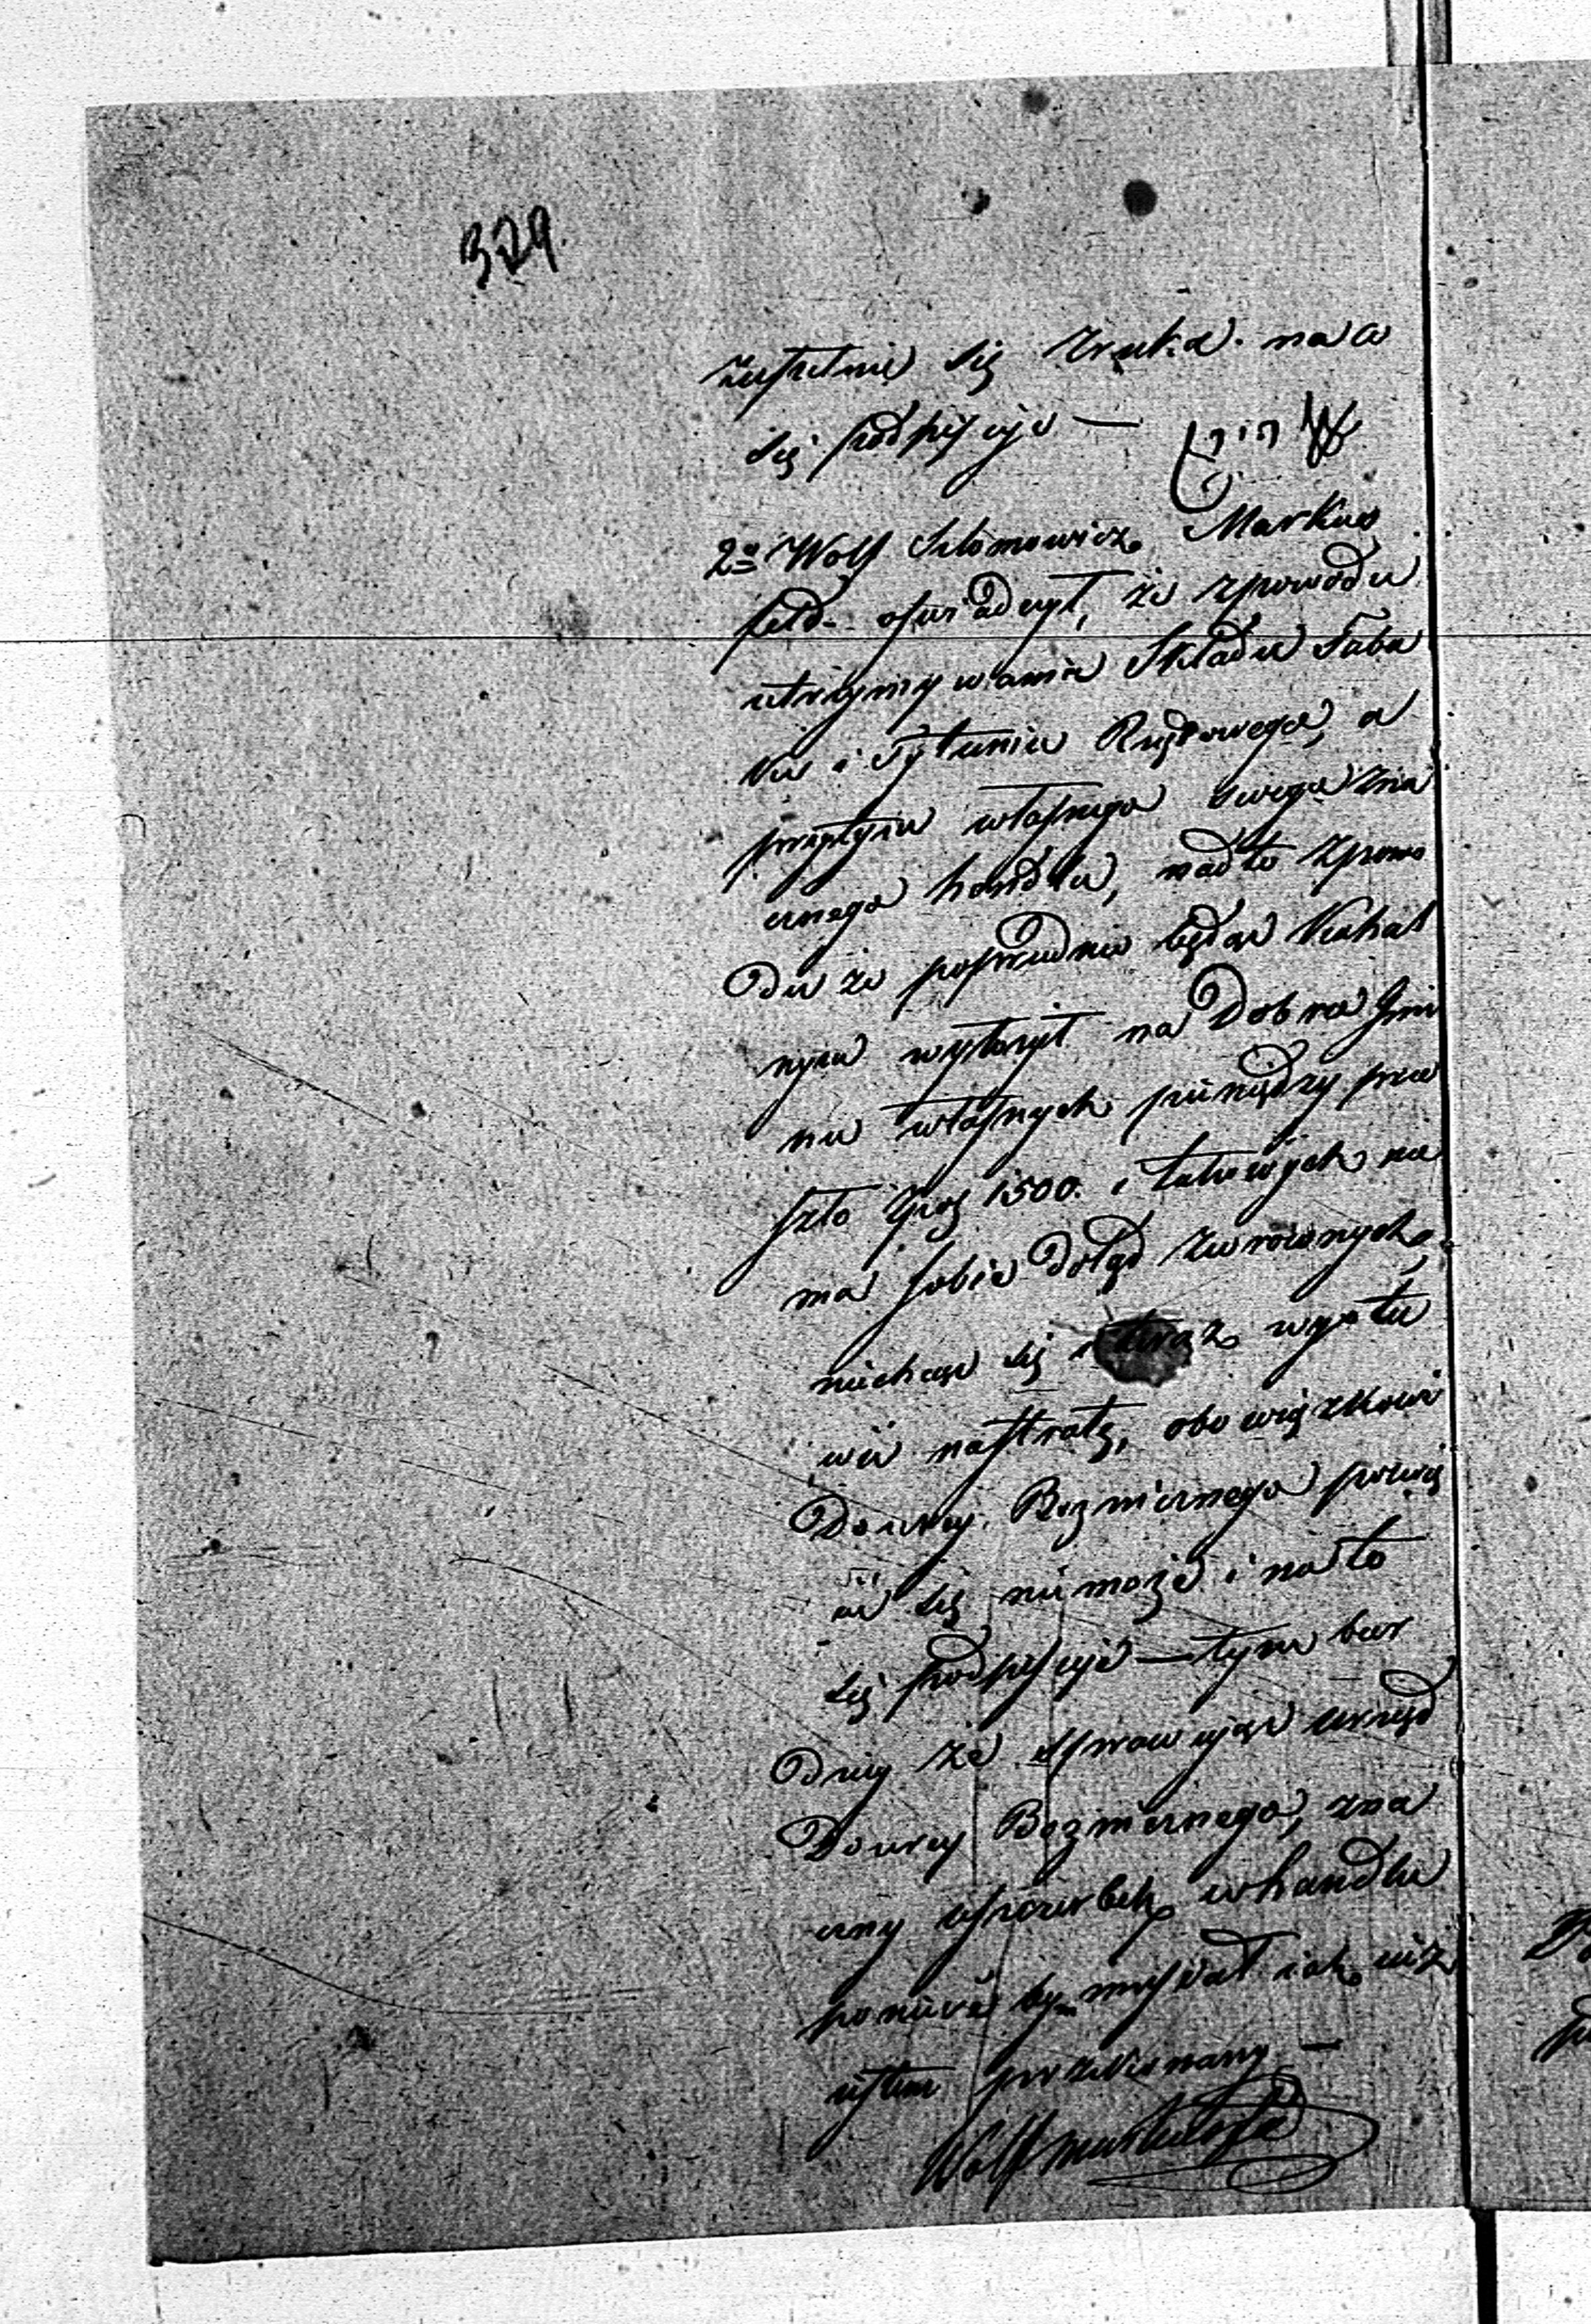 329.
zupełnie się zrzeka. na co
się podpisuje —
2o Wolf Szlomowicz Markus
feld. oświadczył, że zpowodu
utrzymywania Składu Taba
ki i Tytuniu Rządowego, a
przytym własnego swego zna
cznego handlu, nadto zpowo
du że poprzednio będąc Kahal
nym wyłożył na Dobro Gmi
ny własnych pieniędzy prze
szło Złpol 1500. i takowych nie
ma sobie dotąd zwróconych,
niechcąc się teraz wysta
wić na stratę, obowiązkowi
Dozorcy Bożniczego poświę
cić się niemoże i na to
się podpisuje — tym bar
dziej że sprawując urząd
Dozorcy Bożniczego, zna
czny uszczerbek whandlu
ponieśćbym musiał iak iuż
iestem przekonany —
Wolf Markusfeld